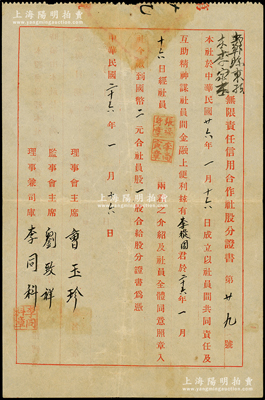 上海阳明拍卖
無限責任信用合作社社股分證書 第廿九號
本社於中華民國廿六年一月十六日成立以社員間共同責任及
互助精神謀社員間金融上便利茲有李 國君於二十六年一月
十六日經社員
兩君之介紹及社員全體同意照章入
收到國幣二元合社員股一股合給股分證書為憑
中華民國二十六年一月十六日
理事會主席 曹玉珍
監事會主席 劉致祥
理事兼司庫 李同科
上海阳明拍卖